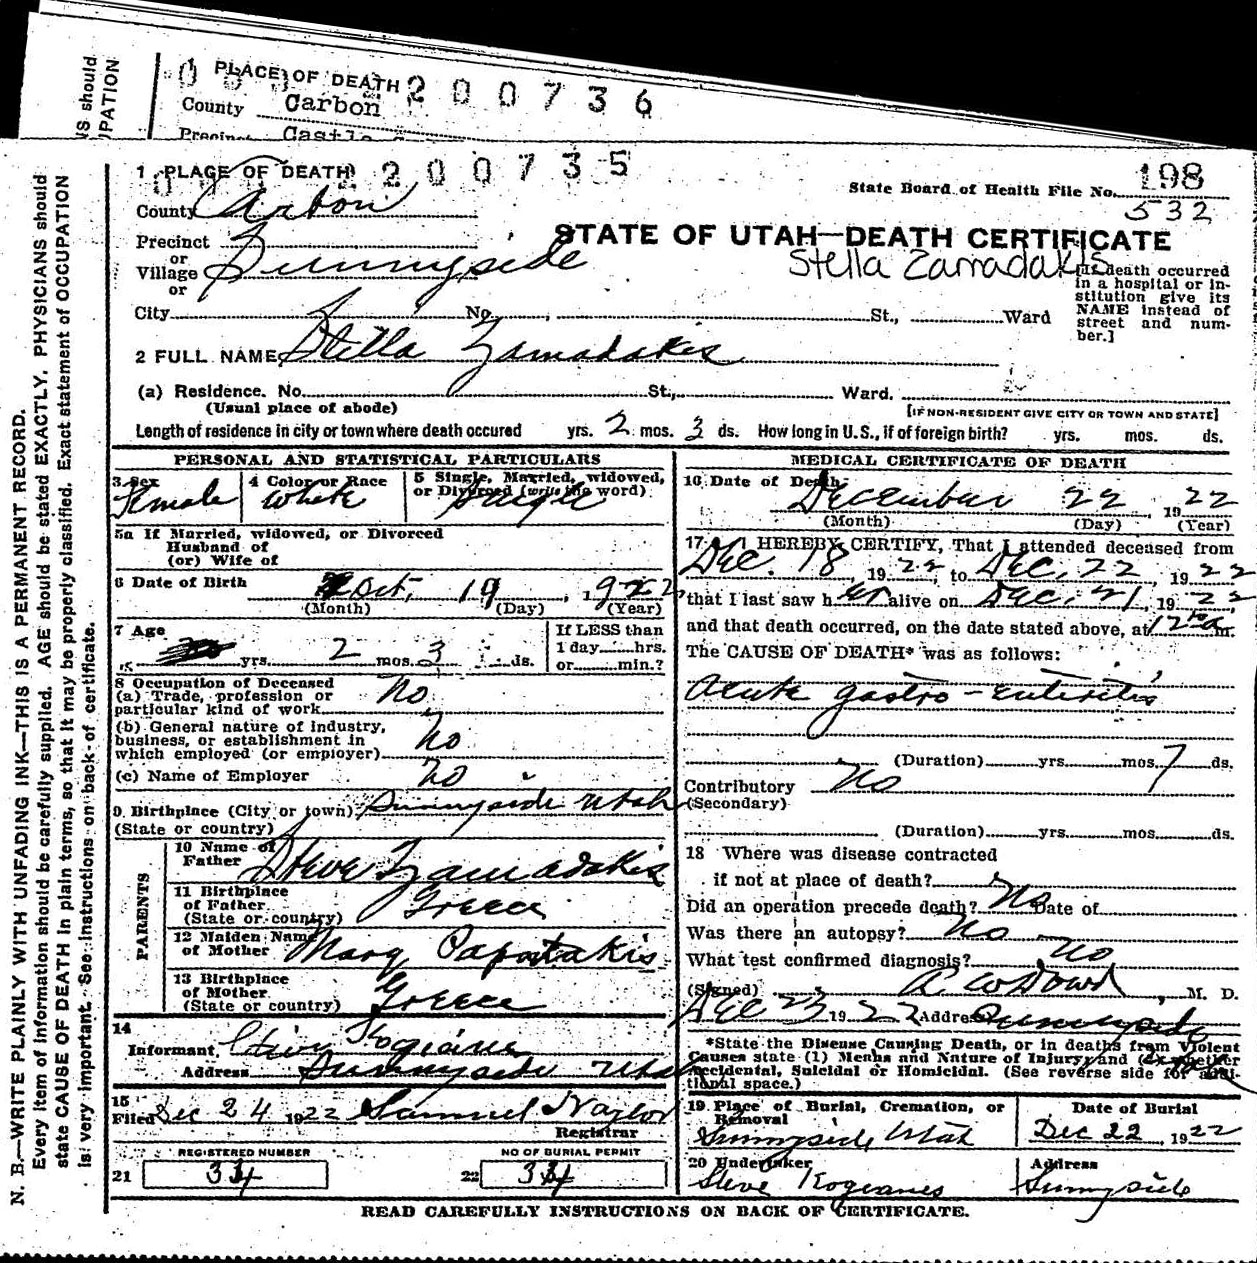 1 PLACE OF DEATH 2 0 0 7 3 6
County Carbon
Precinct Castle
1 PLACE OF DEATH 2 0 0 7 3 5
State Board of Health File No. 198
532
County Carbon
STATE OF UTAH—DEATH CERTIFICATE
Precinct
or
Village Sunnyside
or
Stella Zamadakis
[If death occurred in a hospital or institution give its NAME instead of street and number.]
City No. St., Ward
2 FULL NAME Stella Zamadakis
(a) Residence. No. St., Ward.
(Usual place of abode)
[IF NON-RESIDENT GIVE CITY OR TOWN AND STATE]
Length of residence in city or town where death occured yrs. 2 mos. 3 ds. How long in U.S., if of foreign birth? yrs. mos. ds.
PERSONAL AND STATISTICAL PARTICULARS
3 Sex Female
4 Color or Race White
5 Single, Married, widowed, or Divorced (write the word) Single
5a If Married, widowed, or Divorced
Husband of
(or) Wife of
6 Date of Birth Oct. 19, 1922
(Month) (Day) (Year)
7 Age
yrs. 2 mos. 3 ds.
If LESS than
1 day hrs.
or min.?
8 Occupation of Deceased
(a) Trade, profession or
particular kind of work No
(b) General nature of industry,
business, or establishment in
which employed (or employer) No
(c) Name of Employer No
9 Birthplace (City or town) Sunnyside Utah
(State or country)
PARENTS
10 Name of
Father Steve Zamadakis
11 Birthplace
of Father
(State or country) Greece
12 Maiden Name
of Mother Mary Papatakis
13 Birthplace
of Mother
(State or country) Greece
14
Informant Steve Kogianes
Address Sunnyside Utah
15
Filed Dec 24 1922 Samuel Naylor
Registrar
REGISTERED NUMBER
21 34
NO OF BURIAL PERMIT
22 34
MEDICAL CERTIFICATE OF DEATH
16 Date of Death December 22, 1922
(Month) (Day) (Year)
17 I HEREBY CERTIFY, That I attended deceased from
Dec. 18, 1922, to Dec. 22, 1922
that I last saw her alive on Dec. 21, 1922
and that death occurred, on the date stated above, at m.
The CAUSE OF DEATH* was as follows:
Acute gastro-enteritis
(Duration) yrs. mos. 7 ds.
Contributory No
(Secondary)
(Duration) yrs. mos. ds.
18 Where was disease contracted
if not at place of death? No
Did an operation precede death? No Date of
Was there an autopsy? No
What test confirmed diagnosis? No
(Signed) M. D.
Dec 23 1922 Address Sunnyside
*State the Disease Causing Death, or in deaths from Violent
Causes state (1) Means and Nature of Injury; and (2) whether
Accidental, Suicidal or Homicidal. (See reverse side for additional space.)
19 Place of Burial, Cremation, or
Removal
Sunnyside Utah
Date of Burial
Dec 22, 1922
20 Undertaker
Steve Kogianes
Address
Sunnyside
READ CAREFULLY INSTRUCTIONS ON BACK OF CERTIFICATE.
N. B.—WRITE PLAINLY WITH UNFADING INK—THIS IS A PERMANENT RECORD.
Every item of information should be carefully supplied. AGE should be stated EXACTLY. PHYSICIANS should
state CAUSE OF DEATH in plain terms, so that it may be properly classified. Exact statement of OCCUPATION
is very important. See instructions on back of certificate.